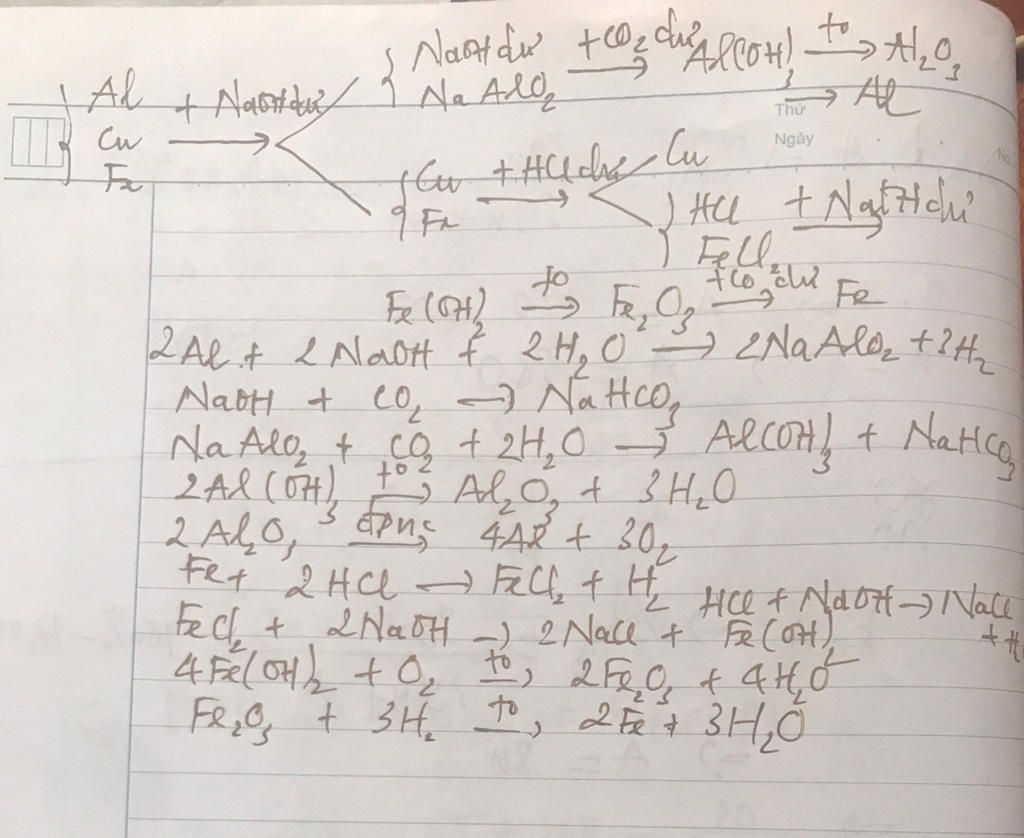 NaOH dư +CO2 dư Al(OH)3 to → Al2O3
NaAlO2 → Al
Al + NaOH dư
Cu →
Fe
Thứ
Ngày
No
Cu + HCl dư Cu
Fe → HCl + NaOH dư
FeCl2
Fe(OH)2 to → Fe2O3 +CO2 dư → Fe
2Al + 2NaOH + 2H2O → 2NaAlO2 + 3H2
NaOH + CO2 → NaHCO3
NaAlO2 + CO2 + 2H2O → Al(OH)3 + NaHCO3
2Al(OH)3 to → Al2O3 + 3H2O
2Al2O3 đpnc → 4Al + 3O2
Fe + 2HCl → FeCl2 + H2
HCl + NaOH → NaCl
+ H
FeCl2 + 2NaOH → 2NaCl + Fe(OH)2
4Fe(OH)2 + O2 to → 2Fe2O3 + 4H2O
Fe2O3 + 3H2 to → 2Fe + 3H2O